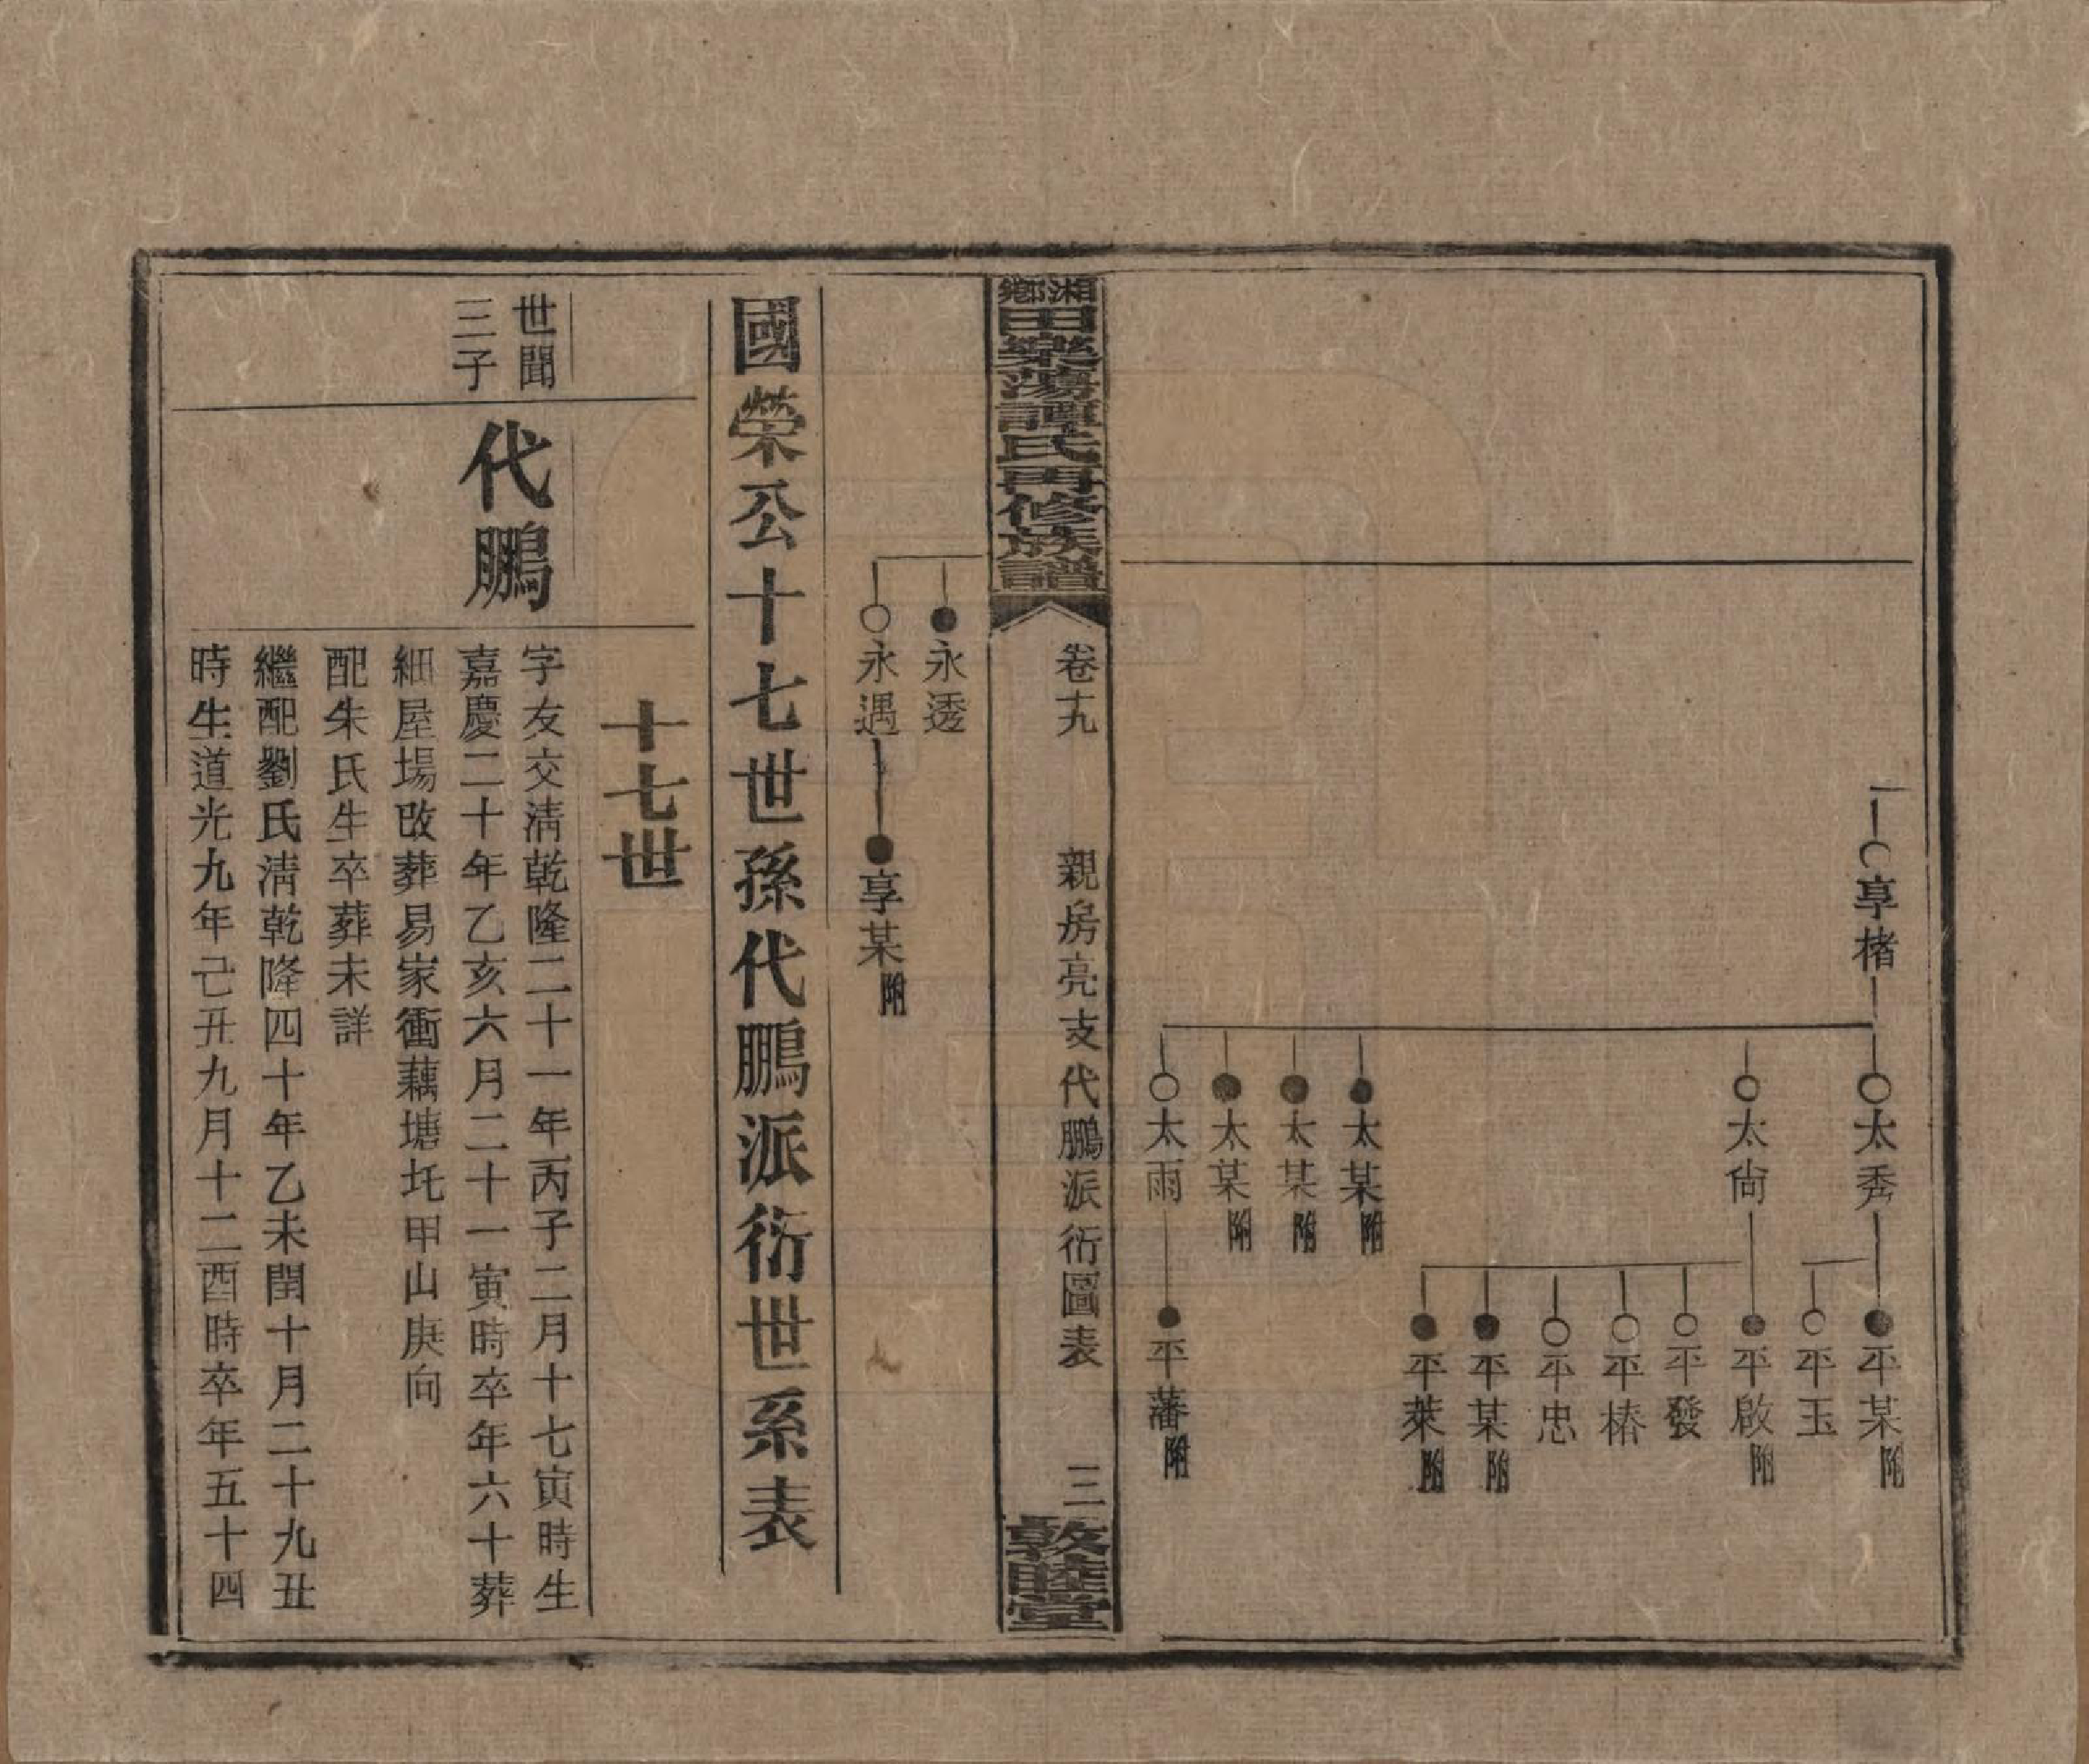 享楮
太秀
平某附
平玉
太尙
平啟附
平發
平椿
平忠
平某附
平萊附
太某附
太某附
太某附
太雨
平藩附
湘鄉田樂蕩譚氏再修族譜
卷十九
親房亮支代鵬派衍圖表
三
敦睦堂
永透
永遇
享某附
國榮公十七世孫代鵬派衍世系表
十七世
世聞
三子
代鵬
字友交淸乾隆二十一年丙子二月十七寅時生
嘉慶二十年乙亥六月二十一寅時卒年六十葬
細屋場改葬易家衝藕塘圫甲山庚向
配朱氏生卒葬未詳
繼配劉氏淸乾隆四十年乙未閏十月二十九丑
時生道光九年己丑九月十二酉時卒年五十四